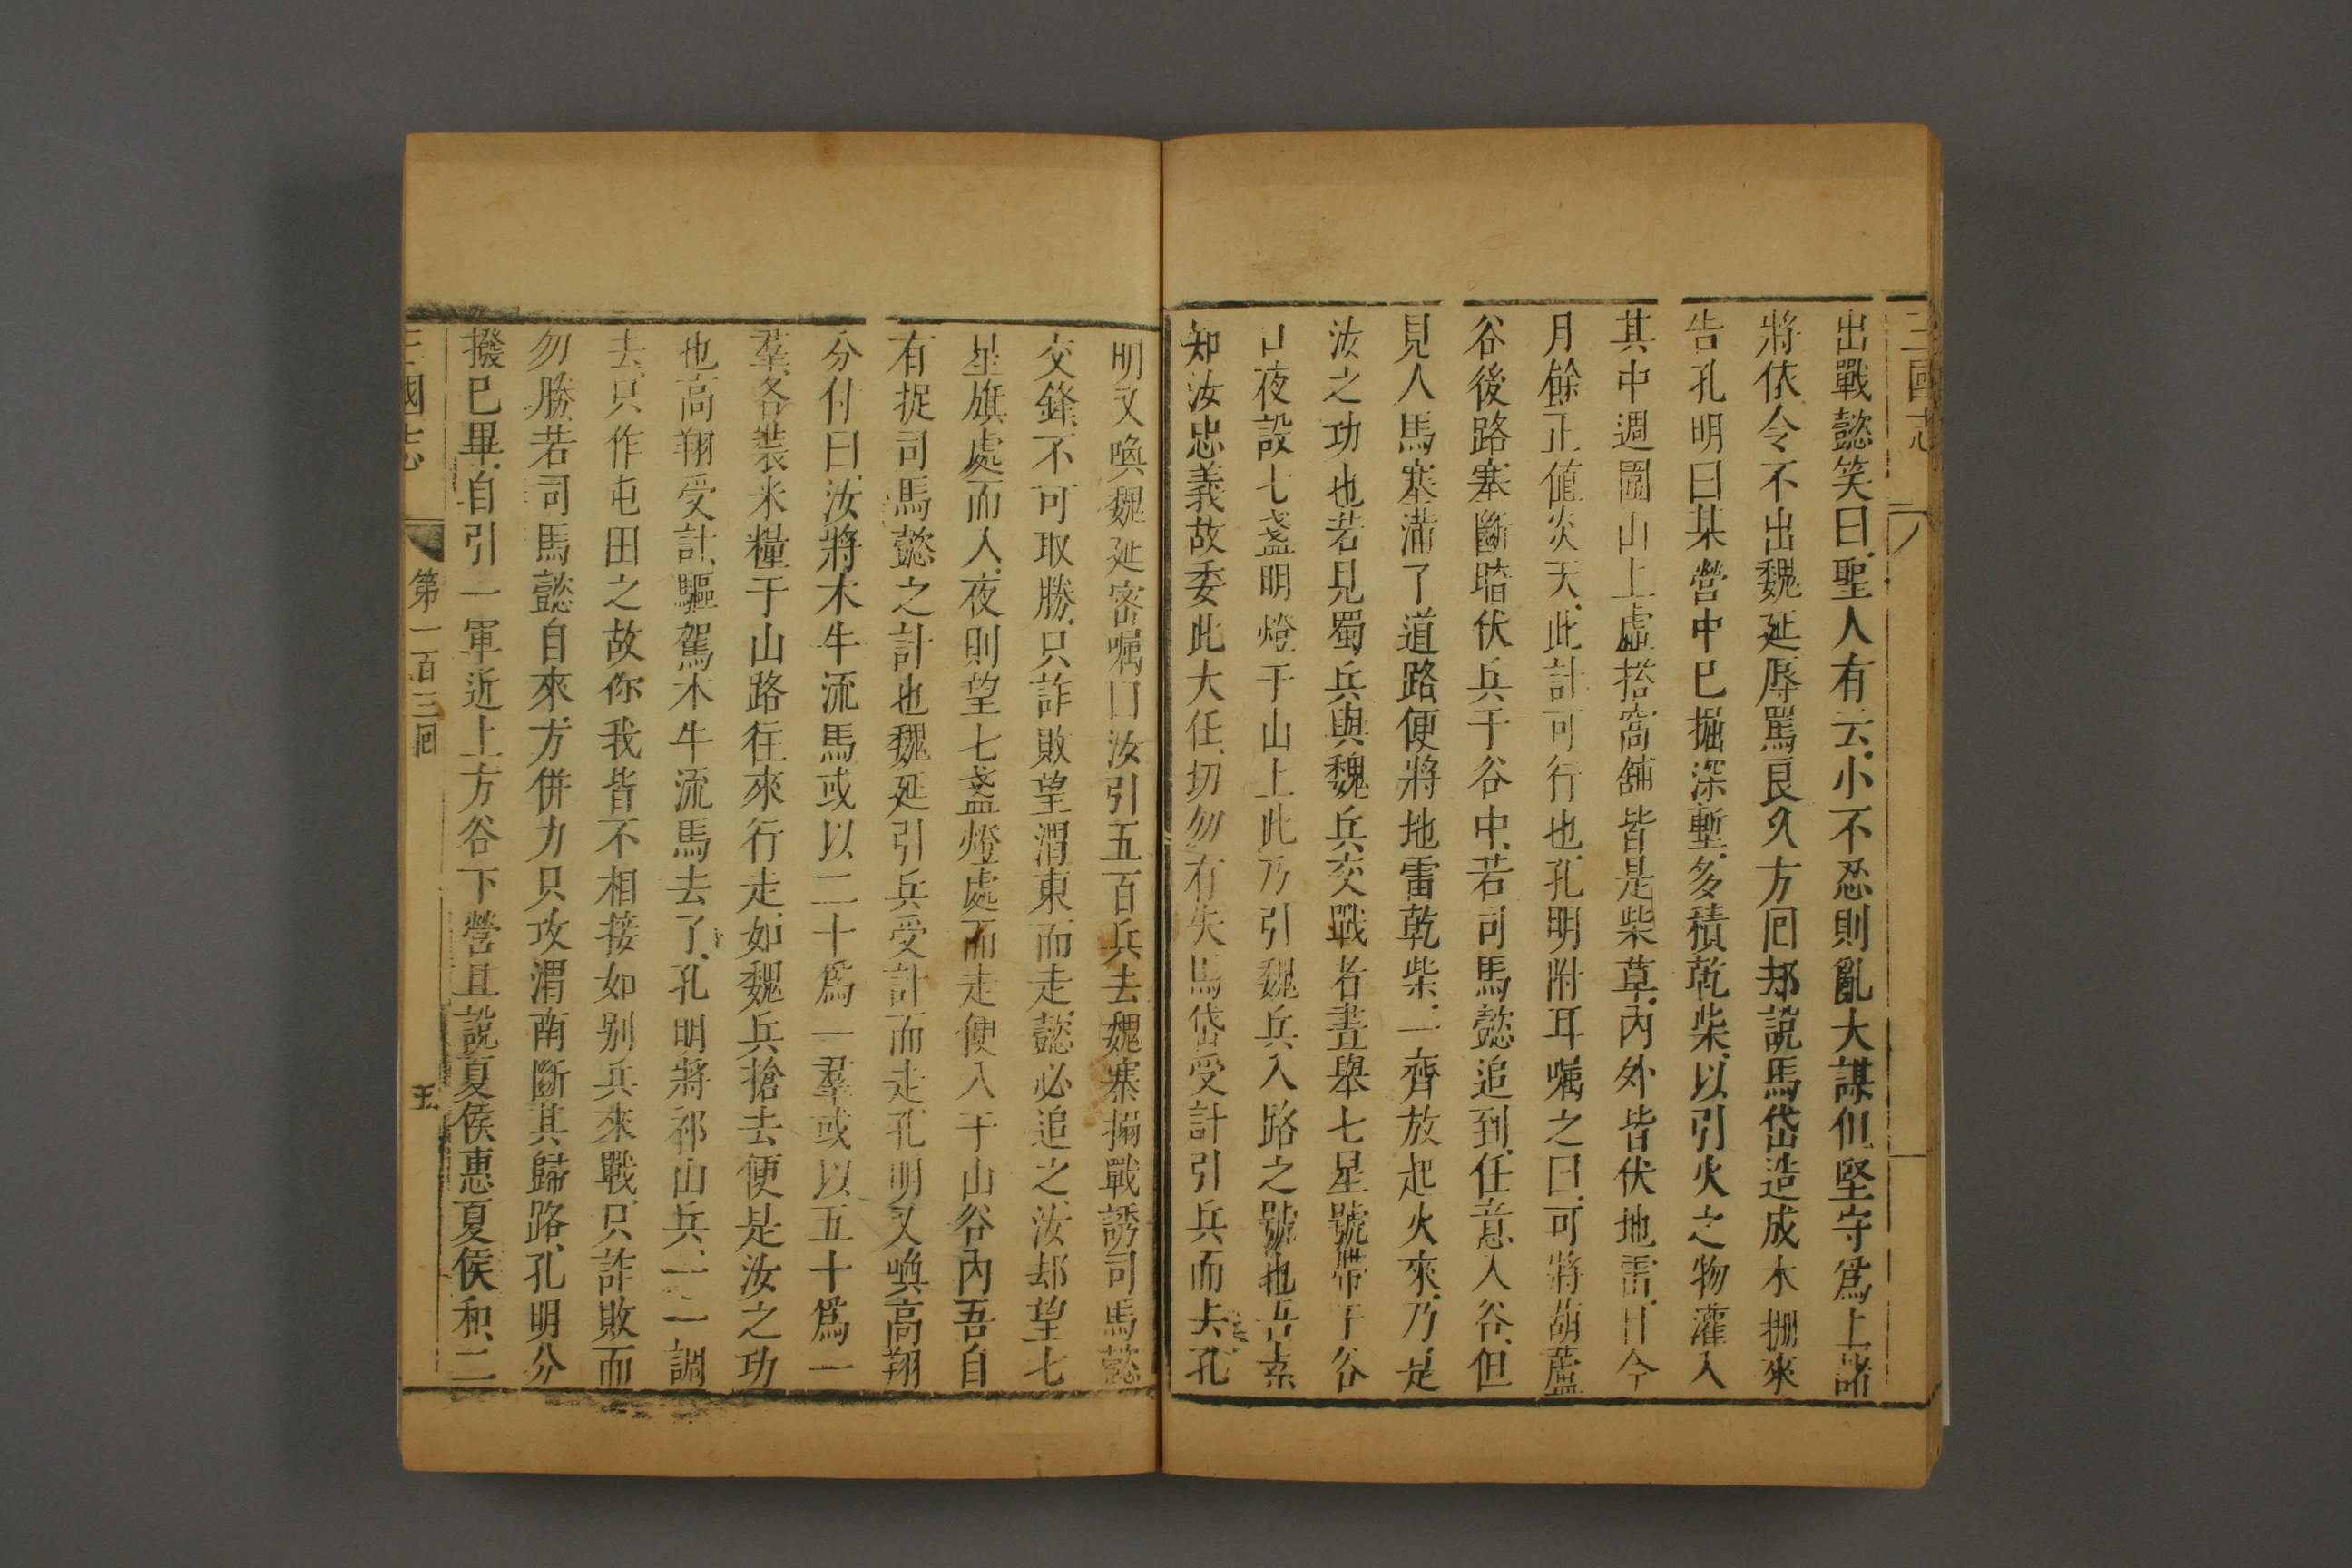 三國志
出戰懿笑曰聖人有云小不忍則亂大謀但堅守爲上諸
將依令不出魏延辱罵良久方囘却說馬岱造成木柵來
告孔明曰某營中已掘深塹多積乾柴以引火之物灌入
其中週圍山上虛搭窩舖皆是柴草內外皆伏地雷目今
月餘正值炎天此計可行也孔明附耳囑之曰可將葫蘆
谷後路塞斷暗伏兵于谷中若司馬懿追到任意入谷但
見人馬塞滿了道路便將地雷乾柴一齊放起火來乃是
汝之功也若見蜀兵與魏兵交戰者晝舉七星號帶于谷
口夜設七盞明燈于山上此乃引魏兵入路之號也吾素
知汝忠義故委此大任切勿有失馬岱受計引兵而去孔
明又喚魏延密囑曰汝引五百兵去魏寨搦戰誘司馬懿
交鋒不可取勝只詐敗望渭東而走懿必追之汝却望七
星旗處而入夜則望七盞燈處而走便入于山谷內吾自
有捉司馬懿之計也魏延引兵受計而走孔明又喚高翔
分付曰汝將木牛流馬或以二十爲一羣或以五十爲一
羣各裝米糧于山路往來行走如魏兵搶去便是汝之功
也高翔受計驅駕木牛流馬去了孔明將祁山兵一一調
去只作屯田之故你我皆不相接如别兵來戰只詐敗而
勿勝若司馬懿自來方併力只攻渭南斷其歸路孔明分
撥已畢自引一軍近上方谷下營且說夏侯惠夏侯和二
三國志 第一百三囘 五